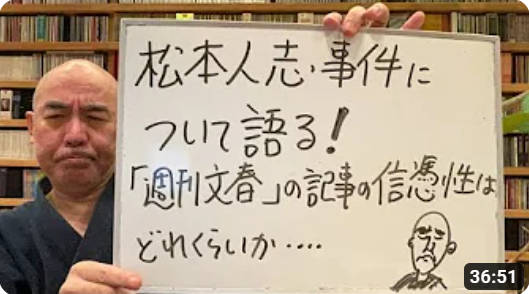 松本人志・事件に
ついて語る!
「週刊文春」の記事の信憑性は
どれくらいか‥‥
36:51